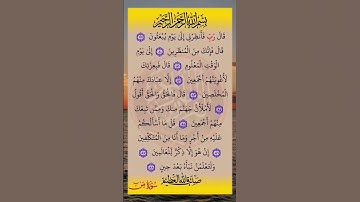 بسم الله الرحمن الرحيم
قَالَ رَبِّ فَأَنظِرْنِي إِلَىٰ يَوْمِ يُبْعَثُونَ
قَالَ فَإِنَّكَ مِنَ الْمُنظَرِينَ إِلَىٰ يَوْمِ
الْوَقْتِ الْمَعْلُومِ قَالَ فَبِعِزَّتِكَ
لَأُغْوِيَنَّهُمْ أَجْمَعِينَ إِلَّا عِبَادَكَ مِنْهُمُ
الْمُخْلَصِينَ قَالَ فَالْحَقُّ وَالْحَقَّ أَقُولُ
لَأَمْلَأَنَّ جَهَنَّمَ مِنكَ وَمِمَّن تَبِعَكَ
مِنْهُمْ أَجْمَعِينَ قُلْ مَا أَسْأَلُكُمْ
عَلَيْهِ مِنْ أَجْرٍ وَمَا أَنَا مِنَ الْمُتَكَلِّفِينَ
إِنْ هُوَ إِلَّا ذِكْرٌ لِّلْعَالَمِينَ
وَلَتَعْلَمُنَّ نَبَأَهُ بَعْدَ حِينٍ
صدق الله العظيم
سورة ص